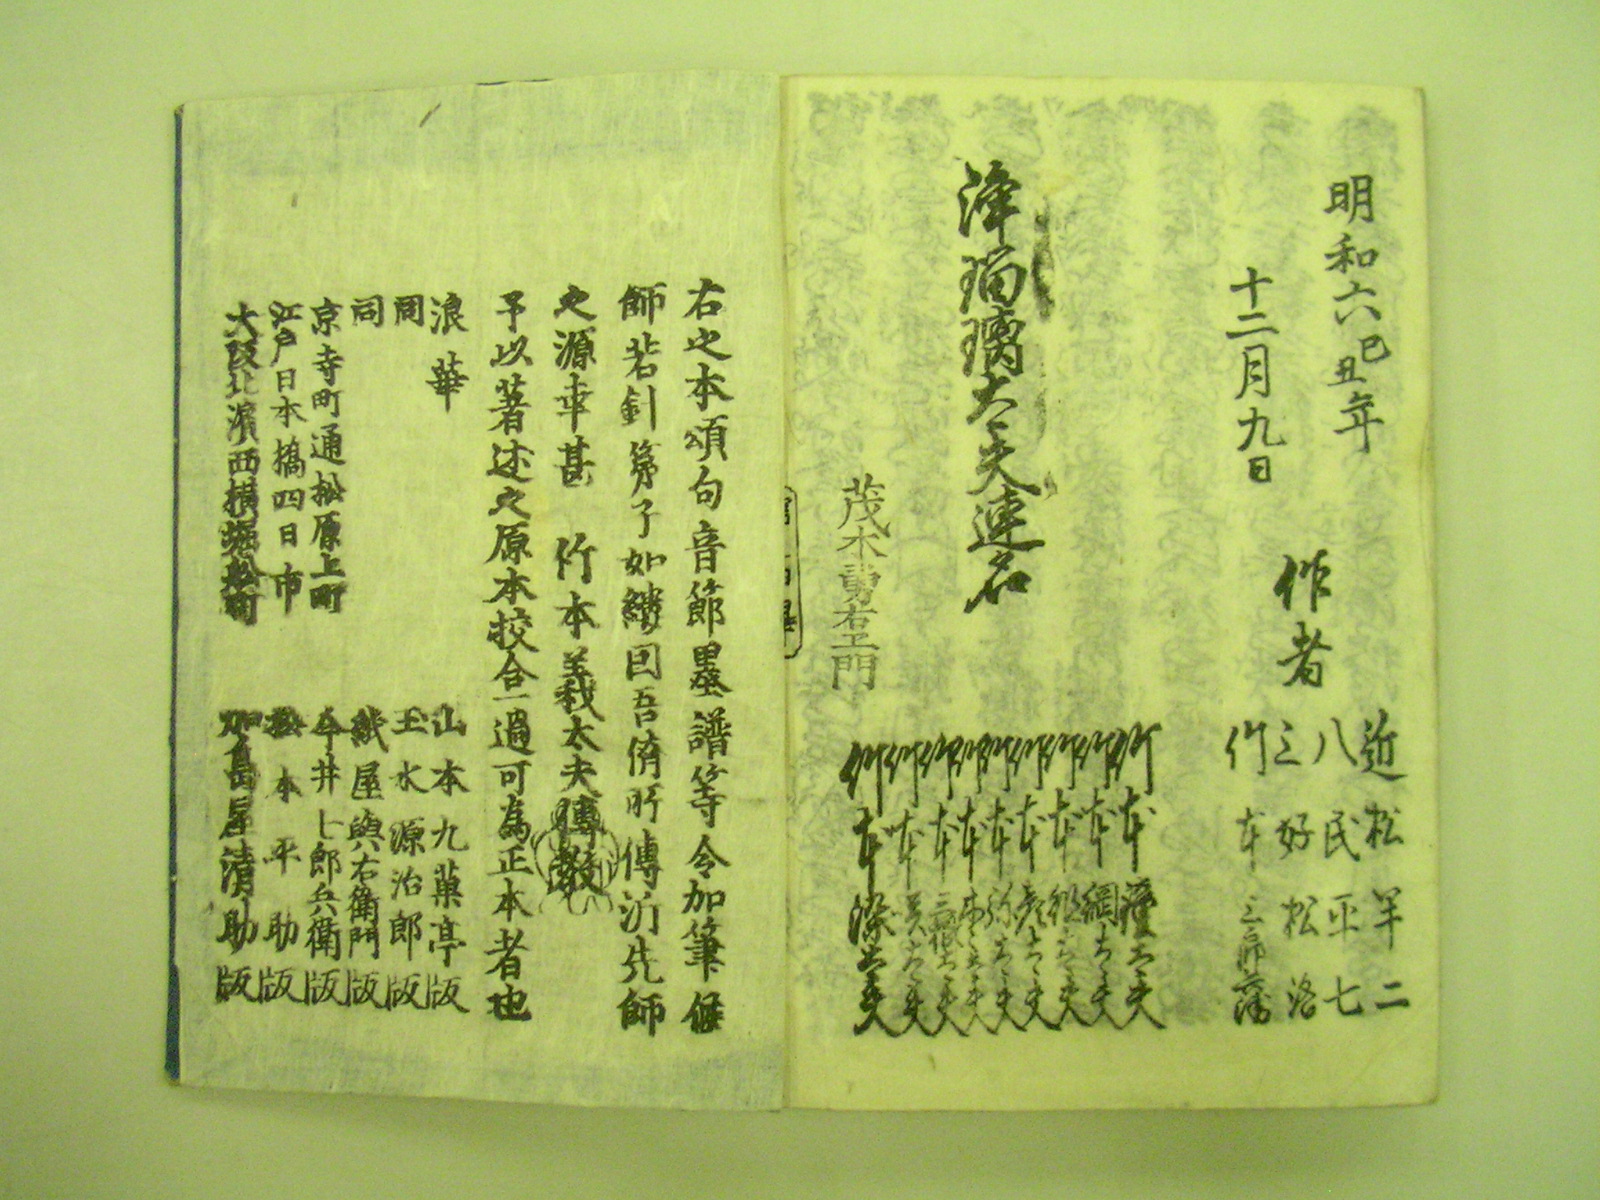 明和六己丑年
十二月九日
作者
近松半二
八民平七
三好松洛
竹本三郎兵衛
浄瑠璃太夫連名
竹本
竹本綱太夫
竹本
竹本
竹本弥太夫
竹本
竹本三根太夫
竹本
竹本染太夫
茂木勇右エ門
右之本頌句音節墨譜等令加筆候
師若針弟子如縷因吾儕所傳泝先師
之源幸甚 竹本義太夫傳教
予以著述之原本挍合一過可為正本者也
浪華 山本九菓亭版
同 玉水源治郎版
同 紙屋與右衞門版
京寺町通松原上町 今井七郎兵衞版
江戸日本橋四日市 松本平助版
大阪北濱西横堀舩町 加島屋清助版